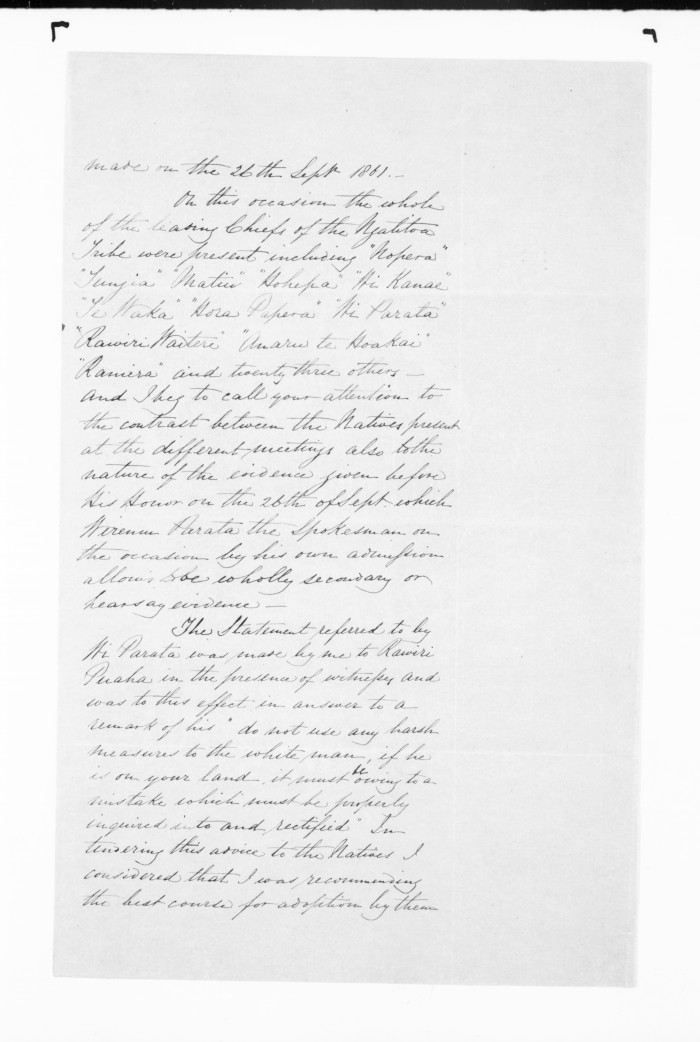 made on the 26th Septr 1861.—
On this occasion the whole
of the leading Chiefs of the Ngatitoa
Tribe were present including "Nopera"
"Tungia" "Matiu" "Hohepa" "Wi Kanae"
"Te Waka" "Hora Papera" "Wi Parata"
"Rawiri Waitere" "Anaru te Hoakai"
"Raniera" and twenty three others —
and I beg to call your attention to
the contrast between the Natives present
at the different meetings also to the
nature of the evidence given before
His Honor on the 26th of Sept. which
Wiremu Parata the Spokesman on
the occasion by his own admission
allows to be wholly secondary or
hearsay evidence —
The Statement referred to by
Wi Parata was made by me to Rawiri
Puaha in the presence of witness, and
was to this effect in answer to a
remark of his "do not use any harsh
measures to the white man, if he
is on your land, it must be owing to a
mistake which must be properly
inquired into and rectified" In
tendering this advice to the Natives I
considered that I was recommending
the best course for adoption by them